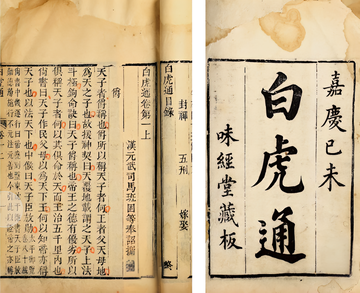 嘉慶己未
白虎通
味經堂藏板
封禪 五刑 嫁娶
白虎通目錄
白虎通卷第一上
漢元武司馬班固等奉詔纂
爵
天子者爵稱也爵所以稱天子者何王者父天母地
為天之子也故援神契曰天覆地載謂之天子上法
斗極鉤命訣曰天子爵稱也帝王之德有優劣所以
俱稱天子者何以其俱命於天而王治五千里內也
尚書曰天子作民父母以為天下王何以知帝亦稱
天子也以法天下也中候曰天子臣放勛